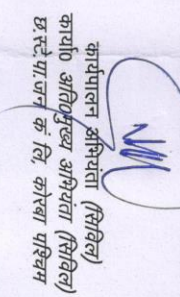 कार्यपालन अभियंता (सिविल)
कार्या० अति०मुख्य अभियंता (सिविल)
छ.स्टे.पा.जन कं लि. कोरबा पश्चिम